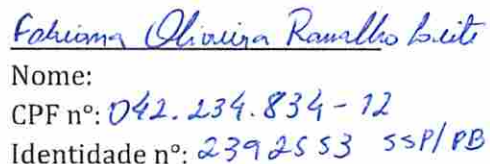 Fabiana Oliveira Ramalho Leite
Nome:
CPF nº: 042.234.834-12
Identidade nº: 2392553 SSP/PB